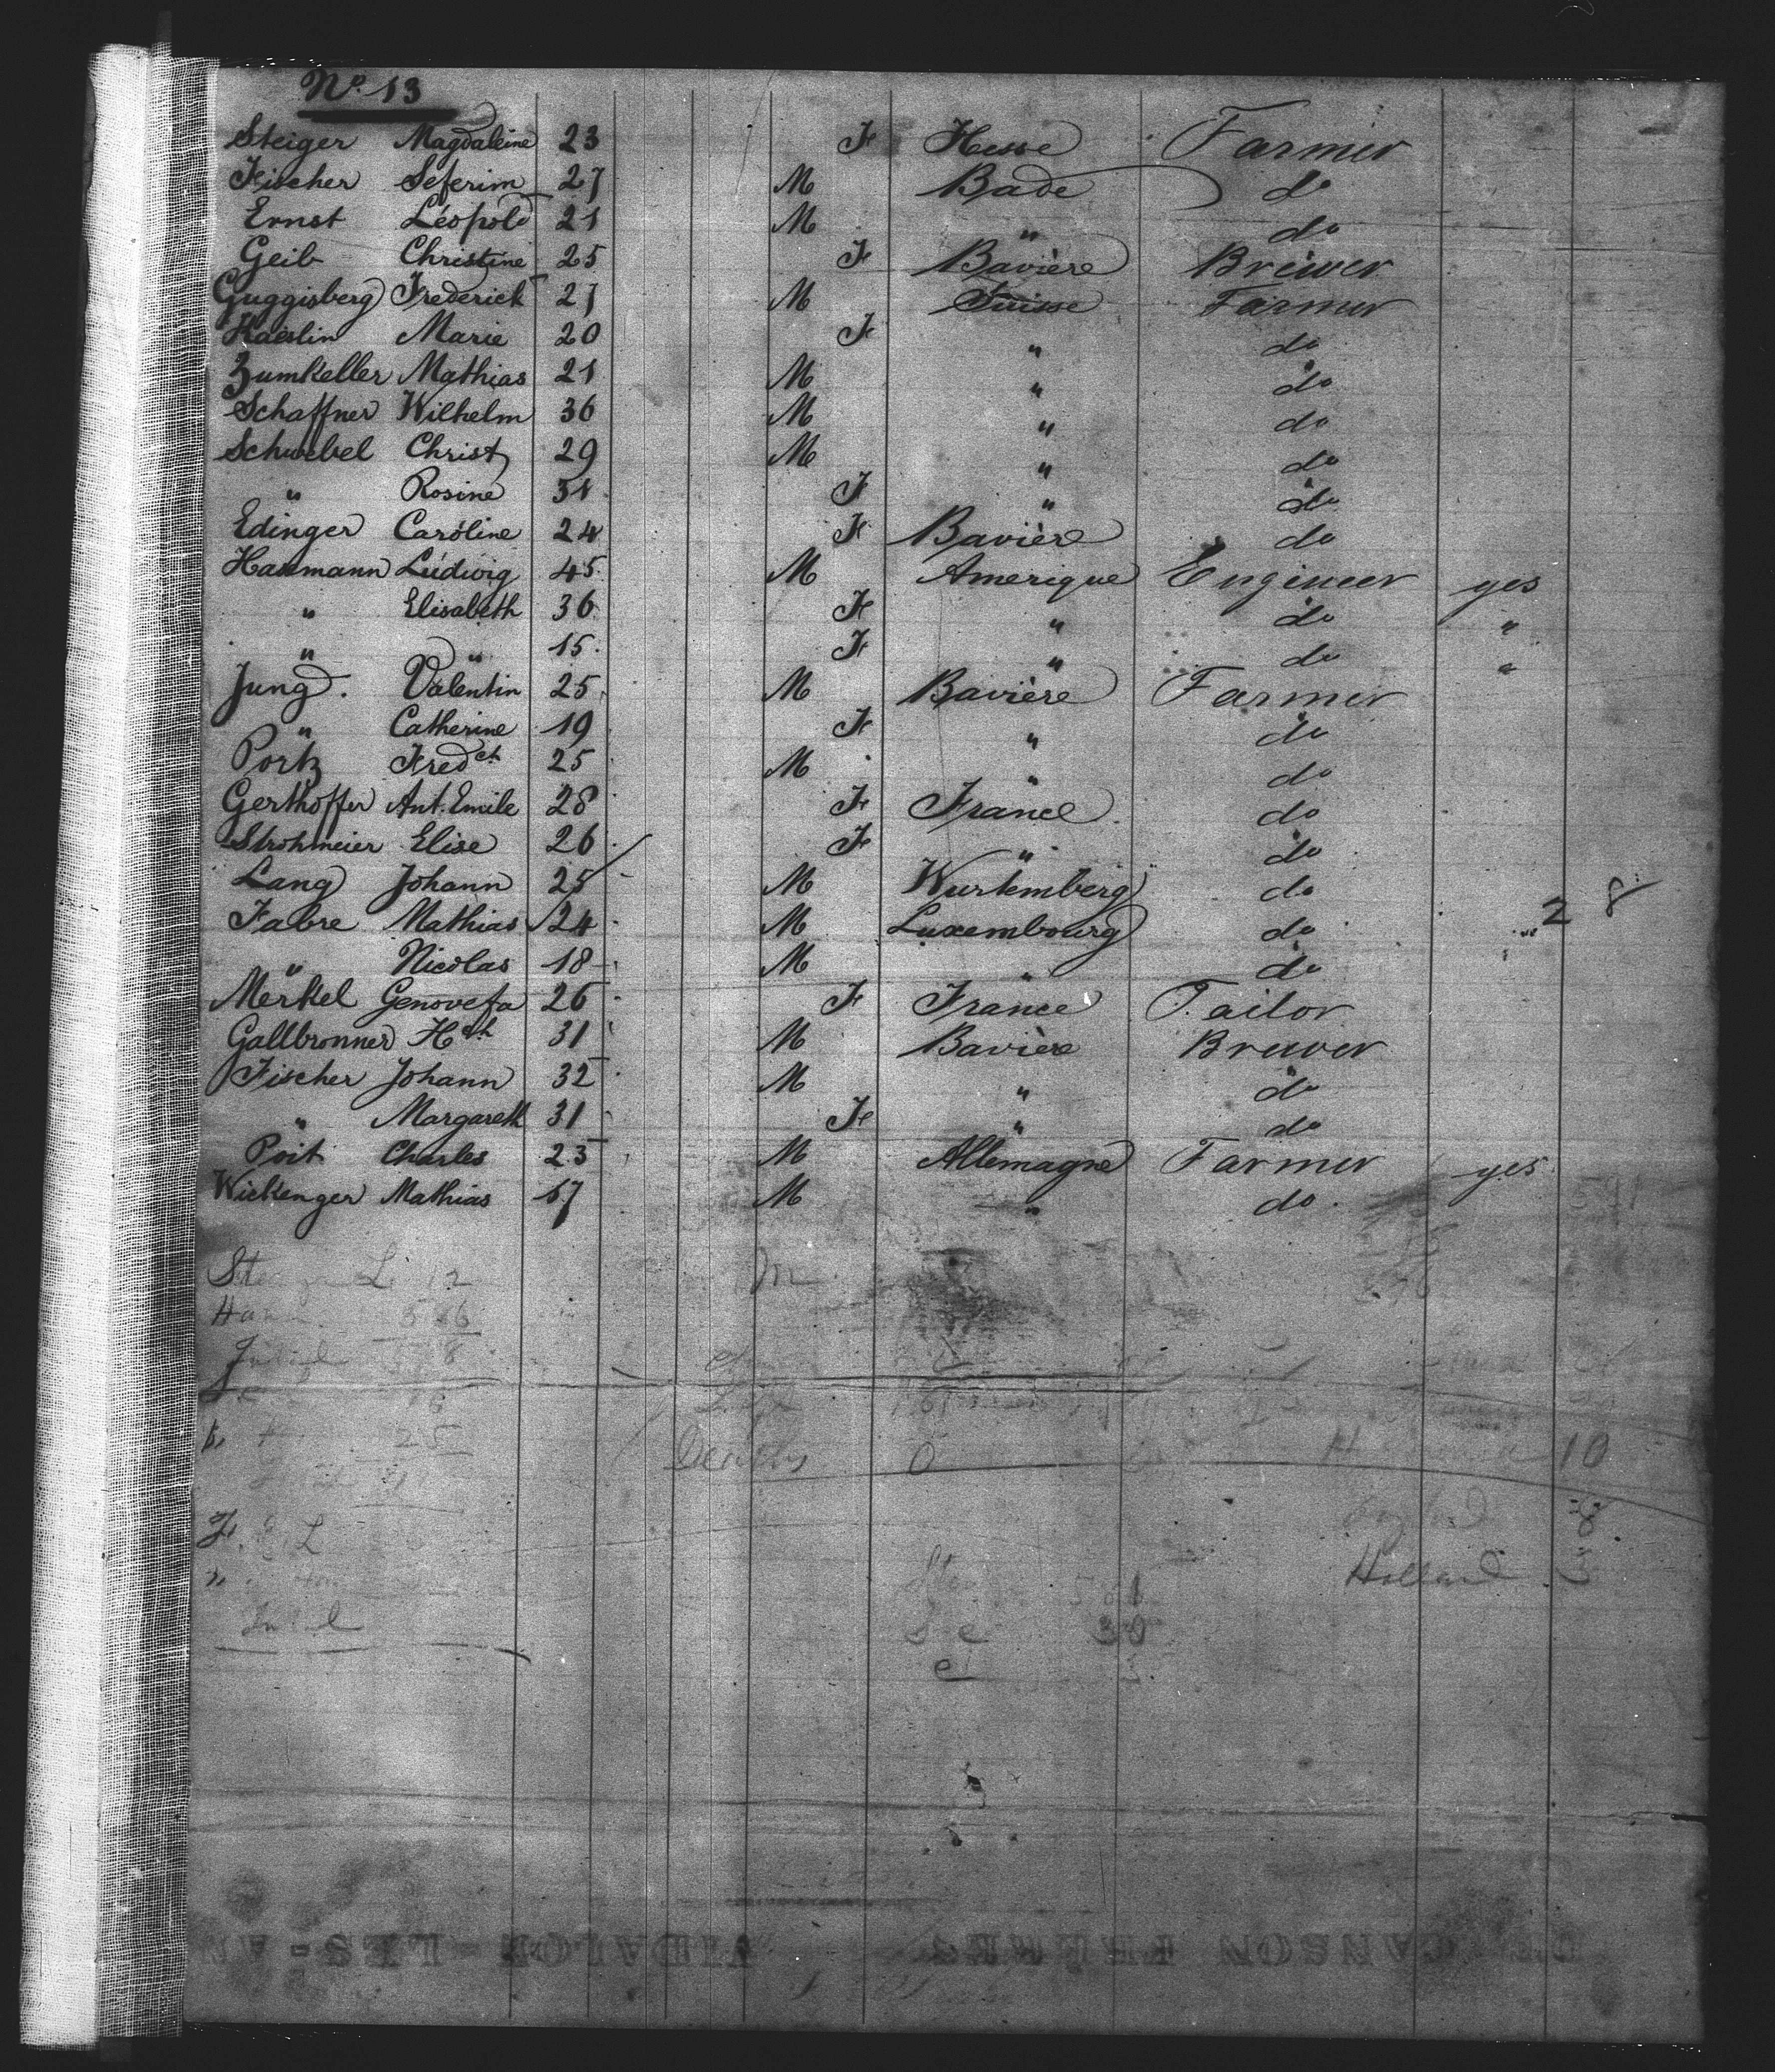 No. 13
Steiger Magdaleine 23 F Hesse Farmer
Fischer Seferim 27 M Bade do
Ernst Léopold 21 M " do
Geib Christine 25 F Bavière Brewer
Guggisberg Frederick 27 M Suisse Farmer
Haeslin Marie 20 F " do
Zumkeller Mathias 21 M " do
Schaffner Wilhelm 36 M " do
Schwebel Christ 29 M " do
" Rosine 31 F " do
Edinger Caroline 24 F Bavière do
Hanmann Ludwig 45 M Amerique Engineer yes
" Elisabeth 36 F " do "
" " 15 F " do "
Jung Valentin 25 M Bavière Farmer
" Catherine 19 F " do
Portz Fredch 25 M " do
Gerthoffer Ant. Emile 28 F France do
Strohmeier Elise 26 F " do
Lang Johann 25 M Wurtemberg do
Fabre Mathias 24 M Luxembourg do 2 8
" Nicolas 18 M " do
Merkel Genovefa 26 F France Tailor
Gallbronner Hch 31 M Bavière Brewer
Fischer Johann 32 M " do
" Margareth 31 F " do
Poit Charles 23 M Allemagne Farmer yes
Wickenger Mathias 17 M " do.
M
Deaths 0 10
Holland
30
CANSON VIDALON-LES-